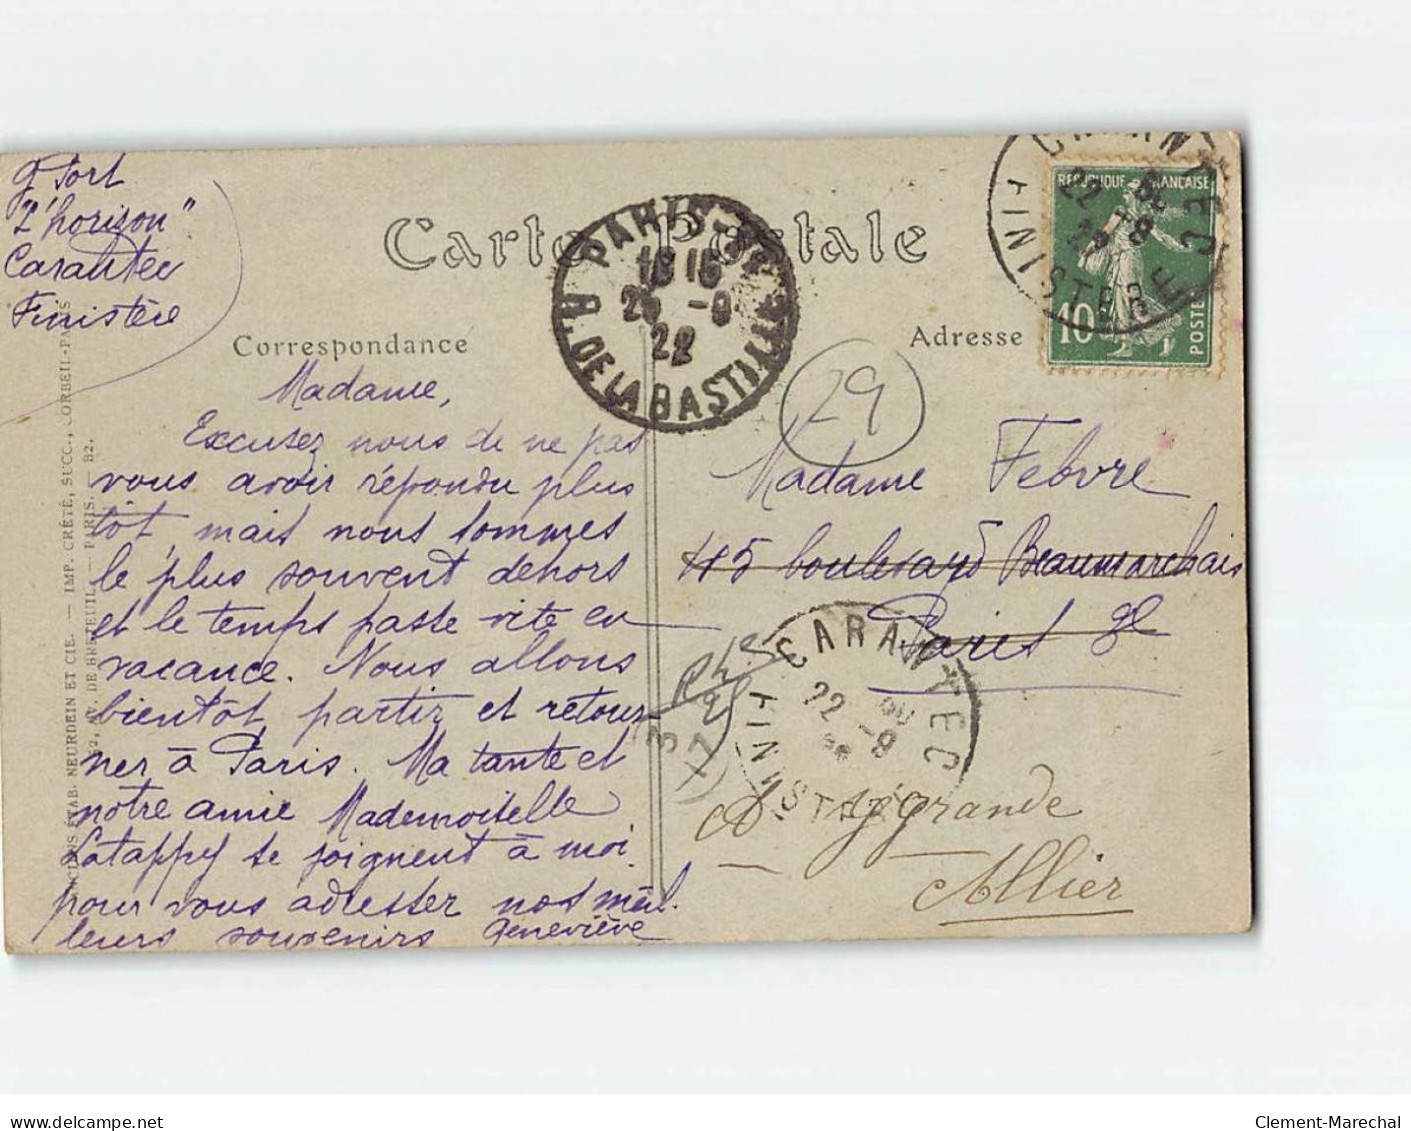 g Port
"L'horizon"
Carantec
Finistère
Carte Postale
Correspondance
Adresse
PARIS
R. DE LA BASTILLE
22
CARANTEC
FINISTERE
REPUBLIQUE FRANÇAISE
10
POSTES
29
Madame,
Excusez nous de ne pas
vous avoir répondu plus
tôt, mais nous sommes
le plus souvent dehors
et le temps passe vite en
vacance. Nous allons
bientôt partir et retour-
ner à Paris. Ma tante et
notre amie Mademoiselle
Latappy se joignent à moi
pour vous adresser nos meil.
leurs souvenirs Geneviève
Madame Febvre
115 boulevard Beaumarchais
Paris
CARANTEC
FINISTERE
22 -9
Allier
ANCIENS ETAB. NEURDEIN ET CIE. — IMP. CRÉTÉ, SUCC., CORBEIL-PARIS
52, AV. DE BRETEUIL — PARIS. — B2.
delcampe.net
Clement-Marechal